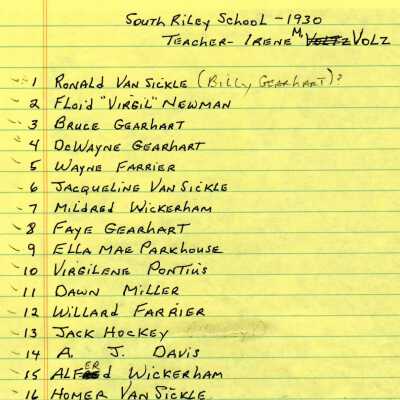 South Riley School - 1930
Teacher - Irene M. Voltz Volz
1 Ronald Van Sickle (Billy Gearhart)?
2 Floid "Virgil" Newman
3 Bruce Gearhart
4 DeWayne Gearhart
5 Wayne Farrier
6 Jacqueline Van Sickle
7 Mildred Wickerham
8 Faye Gearhart
9 Ella Mae Parkhouse
10 Virgilene Pontius
11 Dawn Miller
12 Willard Farrier
13 Jack Hockey
14 A. J. Davis
15 Alfered Wickerham
16 Homer Van Sickle